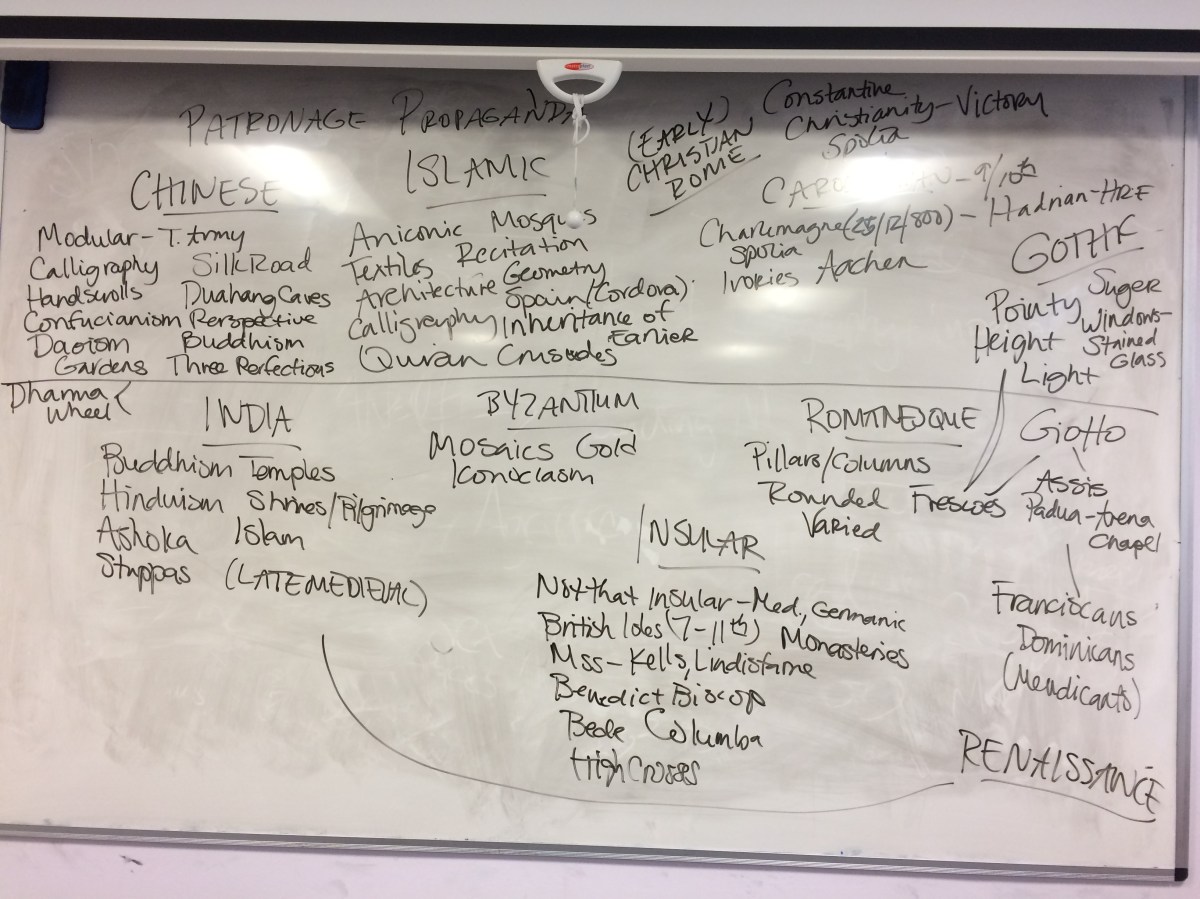 PATRONAGE PROPAGANDA
CHINESE
Modular - T. Army
Calligraphy Silk Road
Handscrolls Duahang Caves
Confucianism Perspective
Daoism Buddhism
Gardens Three Perfections
ISLAMIC
Aniconic Mosques
Textiles Recitation
Architecture Geometry
Spain (Cordova)
Calligraphy Inheritance of
Earlier
Quran Crusades
(EARLY)
CHRISTIAN
ROME
Constantine
Christianity - Victory
Spolia
9/10th
Charlemagne (25/12/800) - Hadrian - HRE
Spolia
Ivories Aachen
GOTHIC
Suger
Pointy Windows -
Height Stained
Glass
Light
Dharma
Wheel
INDIA
Buddhism Temples
Hinduism Shrines/Pilgrimage
Ashoka Islam
Stuppas (LATE MEDIEVAL)
BYZANTIUM
Mosaics Gold
Iconoclasm
ROMANESQUE
Pillars/Columns
Rounded Frescoes
Varied
Giotto
Assis
Padua - Arena
Chapel
Franciscans
Dominicans
(Mendicants)
INSULAR
Not that Insular - Med., Germanic
British Isles (7-11th) Monasteries
Mss - Kells, Lindisfarne
Benedict Biscop
Bede Columba
High Crosses
RENAISSANCE